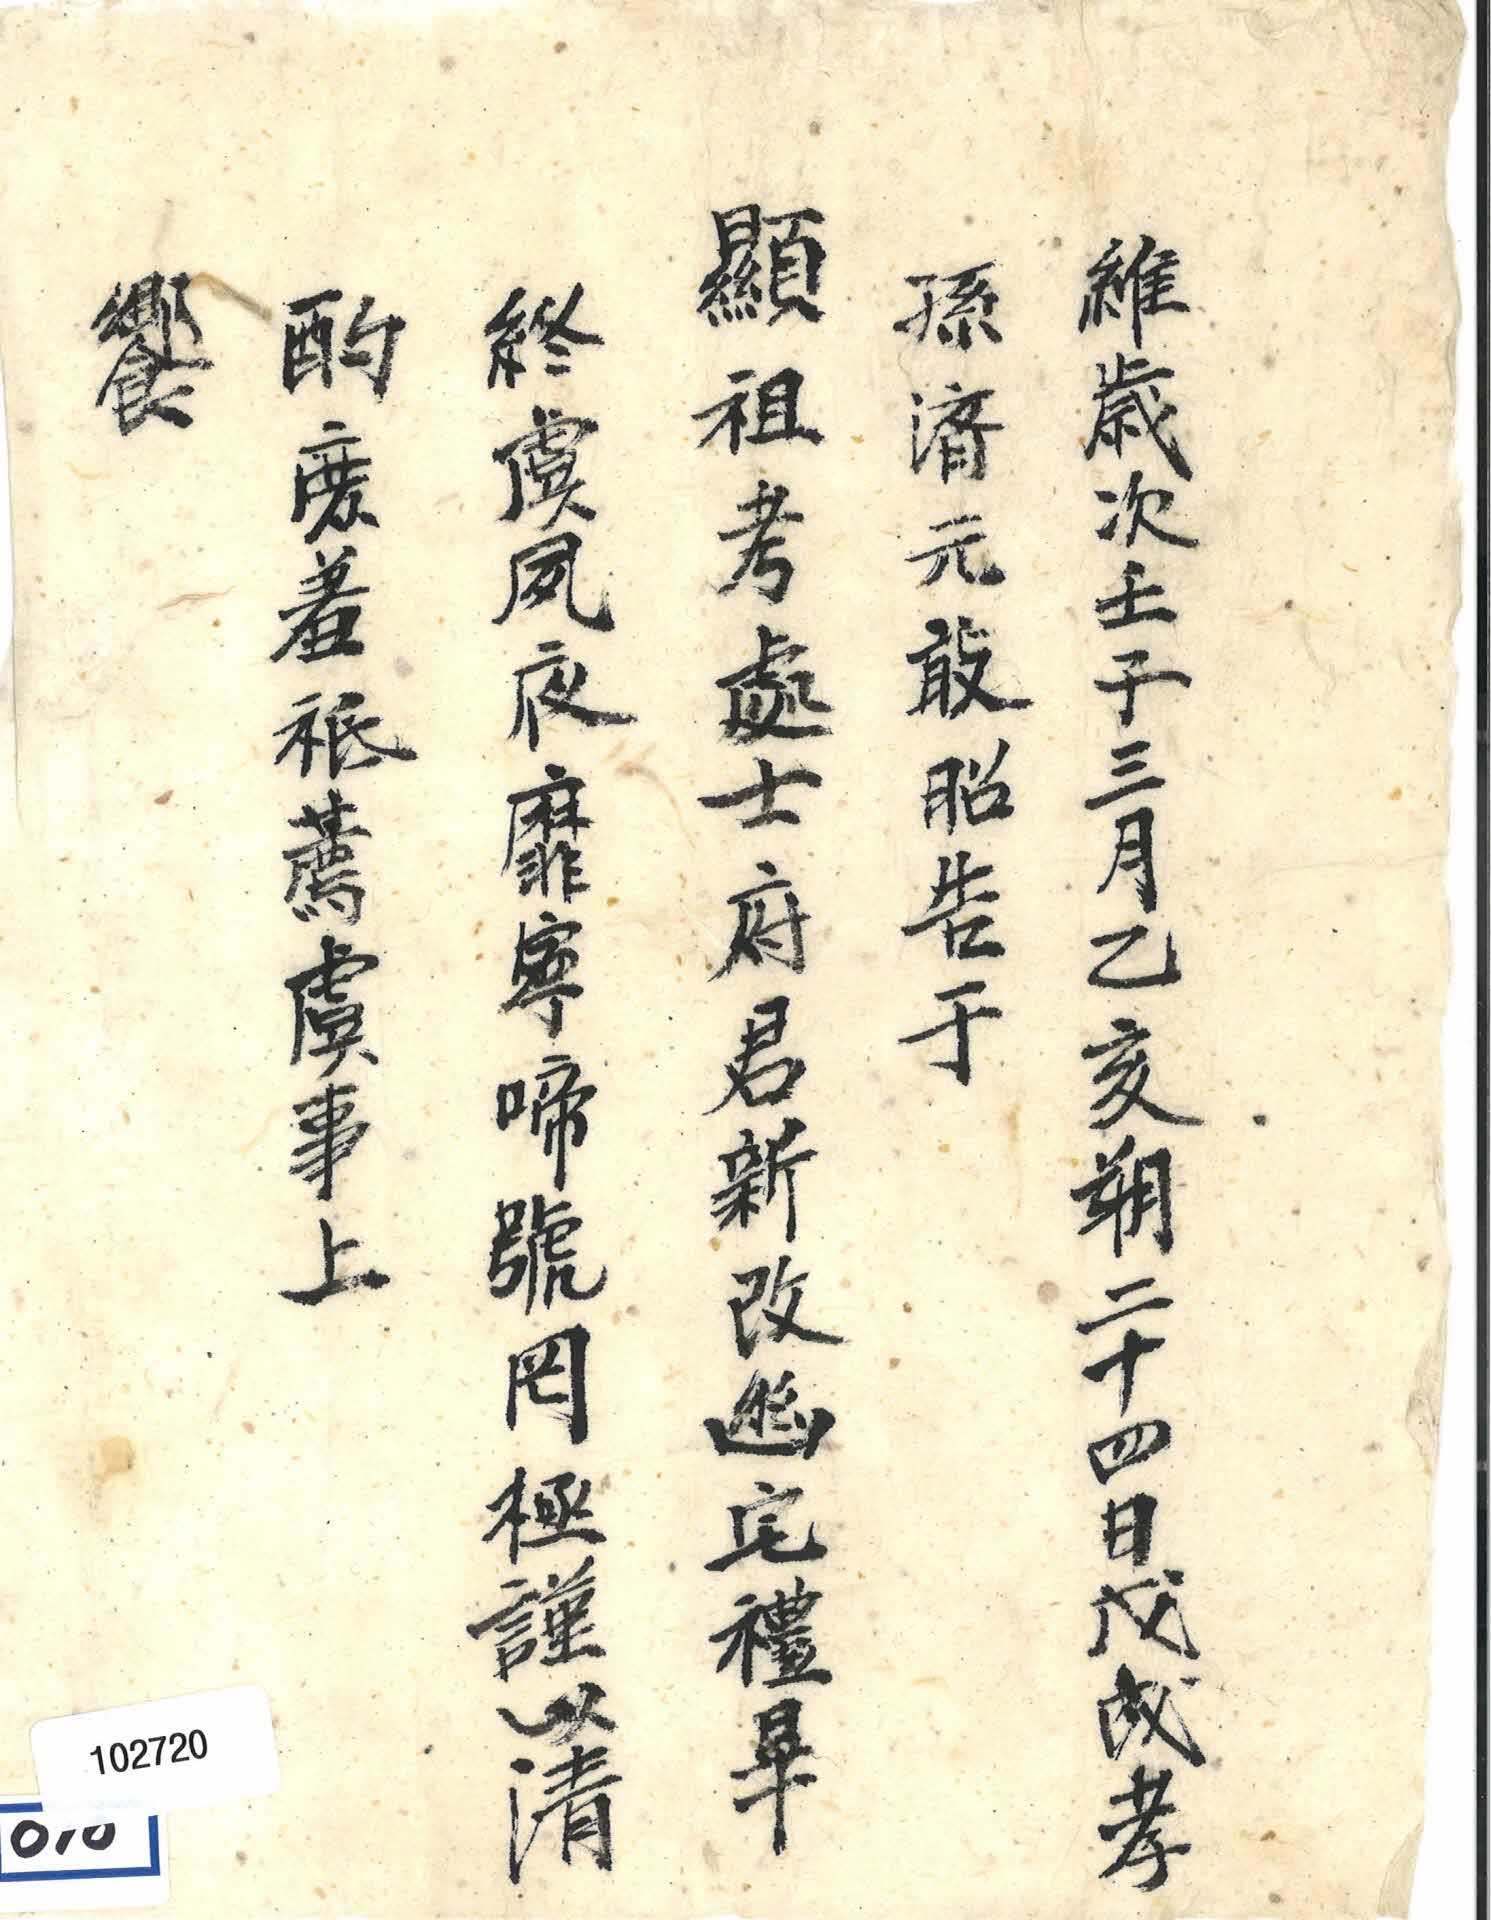 維歲次壬子三月乙亥朔二十四日戊戌孝
孫濟元敢昭告于
顯祖考處士府君新改幽宅禮畢
終虞夙夜靡寧啼號罔極謹以清
酌庶羞祗薦虞事上
饗
102720